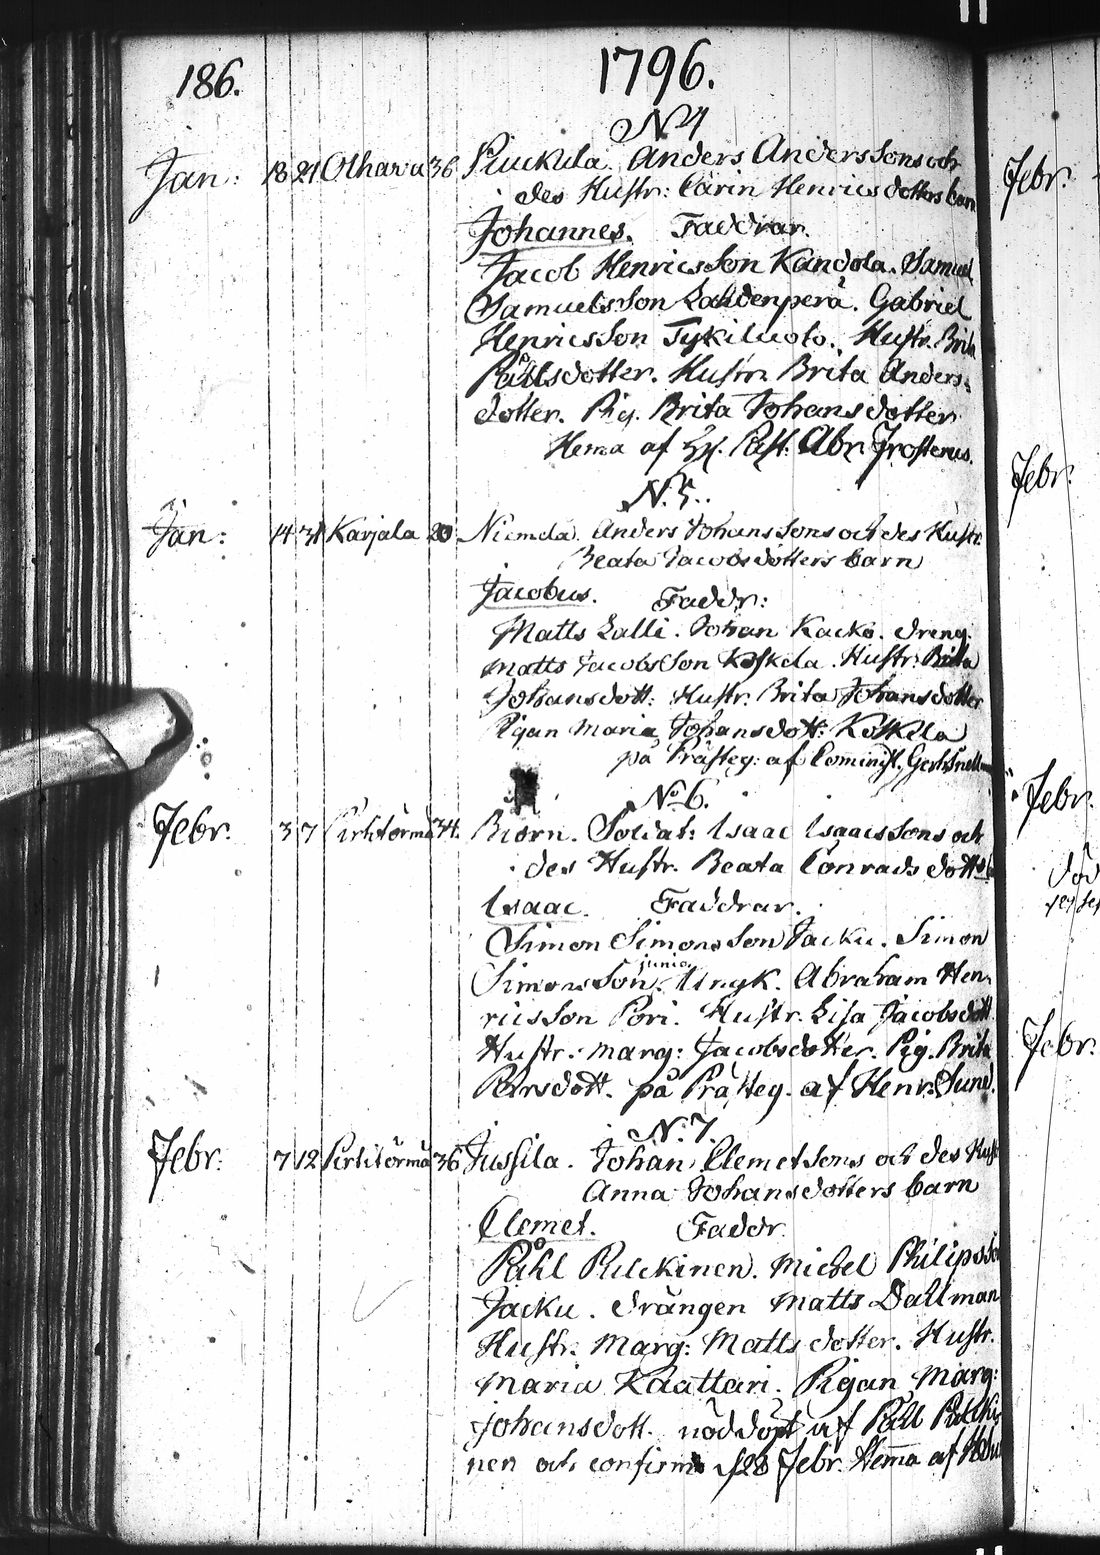 186.
1796.
N 4
Jan: 18 21 Olhava 36 Puuckila Anders Anders Sons och
des Hustr: Carin Henrics dotters barn
Johannes. Faddrar.
Jacob Henrics Son Kandola. Samuel
Samuels Son Lahdenperä. Gabriel
Henrics Son Tykiluoto. Hustr. Brita
Påhlsdotter. Hustr. Brita Anders
dotter. Pig. Brita Johans dotter
Hema af Past: Abr. Frosterus.
N. 5.
Jan: 14 31 Karjala 20 Niemela Anders Johans Sons och des Hustr.
Beata Jacobs dotters barn
Jacobus. Faddr:
Matts Lalli. Johan Kacko. dreng.
Matts Jacobs Son Koskela. Hustr: Brita
Johansdott: Hustr. Brita Johansdotter
Pigan Maria Johansdott: Koskela
på Prästeg: af Cominist. Snellman
No 6.
Febr. 3 7 Pirttitörmä 34. Biorn. Soldat: Isaac Isaacs Sons och
des Hustr. Beata Conrads dott. b
Isaac. Faddrar.
Simon Simons Son Jacku. Simon
junior
Simons Son. Unyk. Abraham Hen
rics Son Pori. Hustr. Lisa Jacobsdott
Hustr. Marg: Jacobsdotter. Pig. Brita
Persdott. på Prästeg. af Henr. Sund.
N. 7.
Febr. 7 12 Pirttitörmä 36 Jussila. Johan Clemet Sons och des Hust
Anna Johansdotters barn
Clemet. Faddr.
Påhl Pulckinen. Michel Philipsso
Jacku. drängen Matts Dallman
Hustr. Marg: Matts dotter. Hustr.
Maria Kaattari. Pigan Marg:
Johansdott. nöddöpt af Påhl Pulcki
nen och confirm d 28 Febr. Hema af
Febr.
Febr.
Febr.
död
Febr.